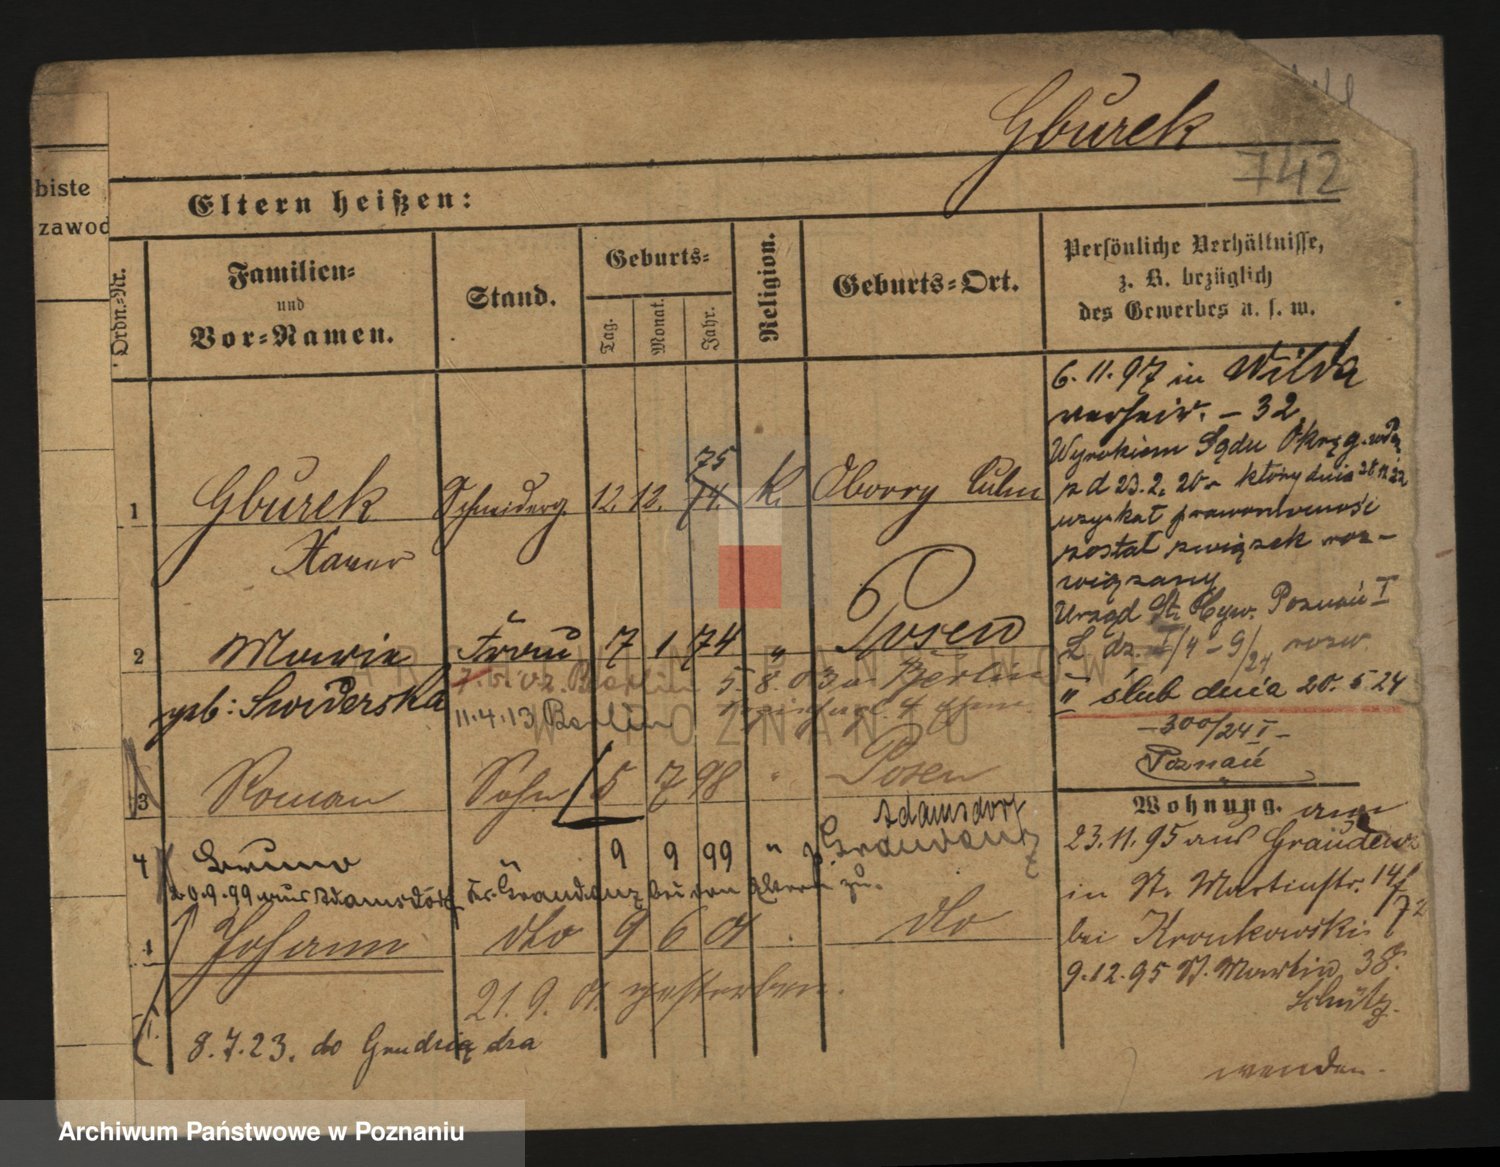 Gburek
742
biste
zawod
Eltern heißen:
Ordn.-Nr.
Familien-
und
Vor-Namen.
Stand.
Geburts-
Tag.
Monat.
Jahr.
Religion.
Geburts-Ort.
Persönliche Verhältnisse,
z. B. bezüglich
des Gewerbes u. s. w.
6.11.97 in Wilda
verheir. - 32
Wyrokiem Sądu Okręg.
z d 23.2.20 który dnia 28.11.22
uzyskał prawomocność
został związek roz-
wiązany
Urząd St. Cyw. Poznań I
L. dz. I/4 - 9/24 rozw.
II ślub dnia 20.5.24
- 300/24 I -
Poznań
1 Gburek Schneiderg. 12. 12. 74. 75 k. Oborry Culm
Xaver
2 Marie Frau 7 1 74 " Posen
geb: Swiderska
Berlin 5.8.03 Berlin
11.4.13 Berlin
3 Roman Sohn 5 7 98 " Posen
4 Bruno " 9 9 99 " Adamsdorf
Graudenz
20.9.99 aus Adamsdorf Kr. Graudenz bei den Eltern zu.
4 Johann dto 9 6 01 . dto
21.9.01 gestorben.
8.7.23. do Grudziądza
Wohnung. am
23.11.95 aus Graudenz
in St. Martinstr. 14
bei Kronkowski
9.12.95 St. Martin 38.
Schütz.
wenden.
ARCHIWUM PAŃSTWOWE
W POZNANIU
Archiwum Państwowe w Poznaniu